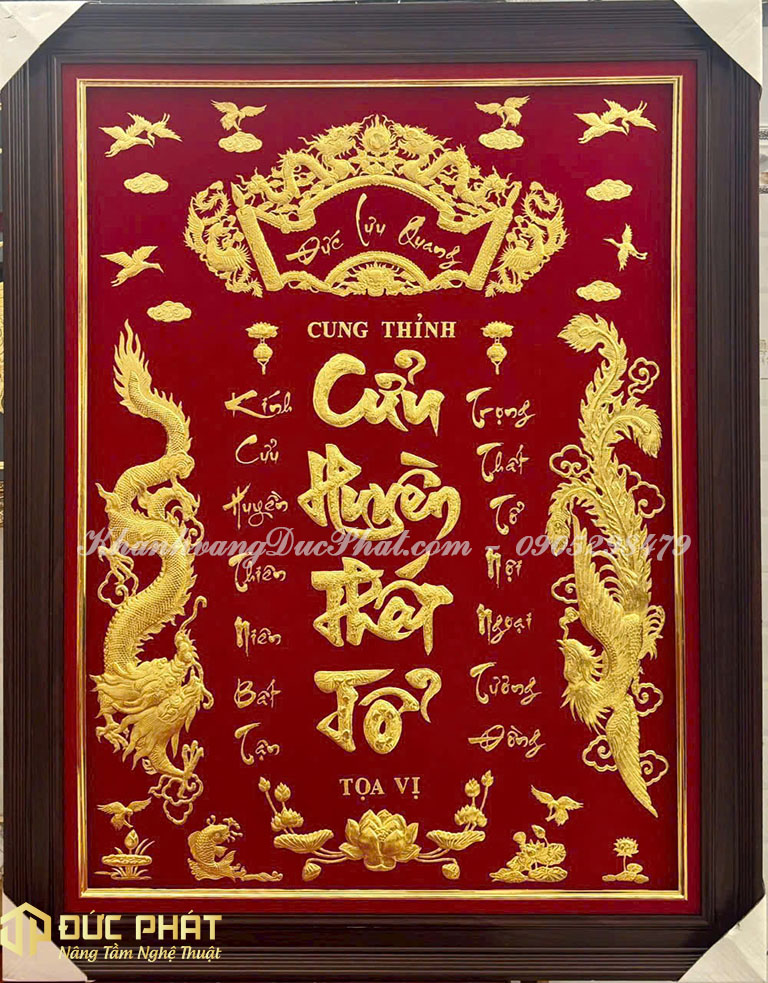 Đức Lưu Quang
CUNG THỈNH
Cửu
Huyền
Thất
Tổ
TỌA VỊ
Kính
Cửu
Huyền
Thiên
Niên
Bất
Tận
Trọng
Thất
Tổ
Nội
Ngoại
Tương
Đồng
KhanhvangDucPhat.com - 0905238479
ĐỨC PHÁT
Nâng Tầm Nghệ Thuật